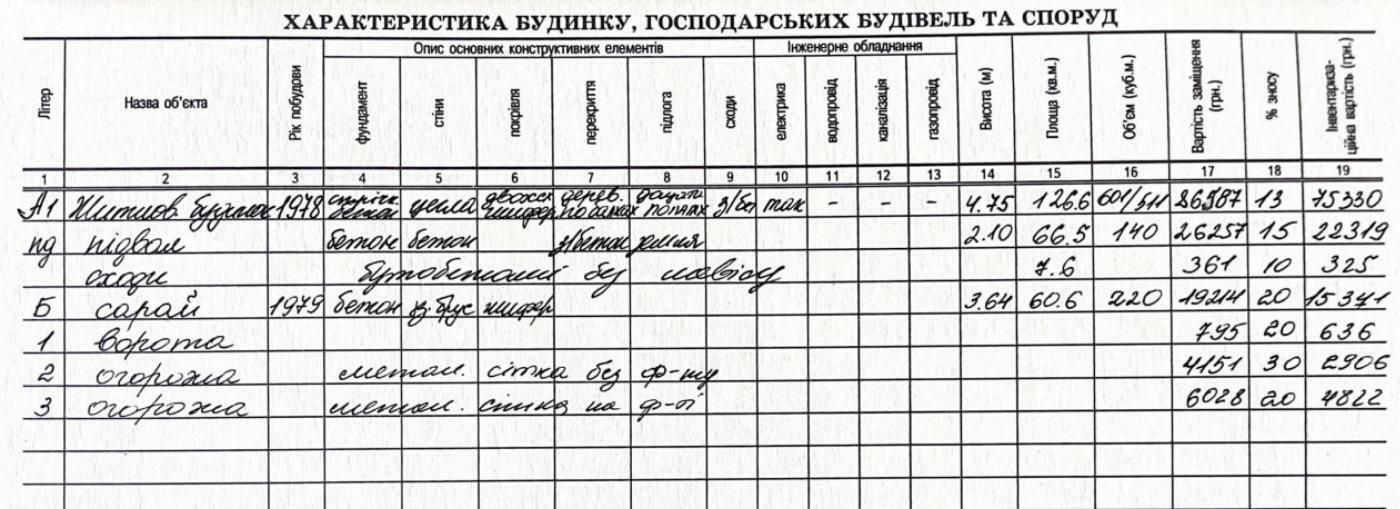 ХАРАКТЕРИСТИКА БУДИНКУ, ГОСПОДАРСЬКИХ БУДІВЕЛЬ ТА СПОРУД
Літер Назва об'єкта Рік побудови Опис основних конструктивних елементів Інженерне обладнання Висота (м) Площа (кв.м.) Об'єм (куб.м.) Вартість заміщення (грн.) % зносу Інвентариза-ційна вартість (грн.)
фундамент стіни покрівля перекриття підлога сходи електрика водопровід каналізація газопровід
1 2 3 4 5 6 7 8 9 10 11 12 13 14 15 16 17 18 19
А1 Житлов. будинок 1978 бетон цегла шифер дерев. по балках з/бет так - - - 4.75 126.6 601/511 86587 13 75330
пд підвал бетон бетон з/бетон земля 2.10 66.5 140 26257 15 22319
сходи бутобетонні без навісу 7.6 361 10 325
Б сарай 1979 бетон шифер 3.64 60.6 220 19214 20 15371
1 ворота 795 20 636
2 огорожа метал. сітка без ф-ту 4151 30 2906
3 огорожа метал. сітка на ф-ті 6028 20 4822